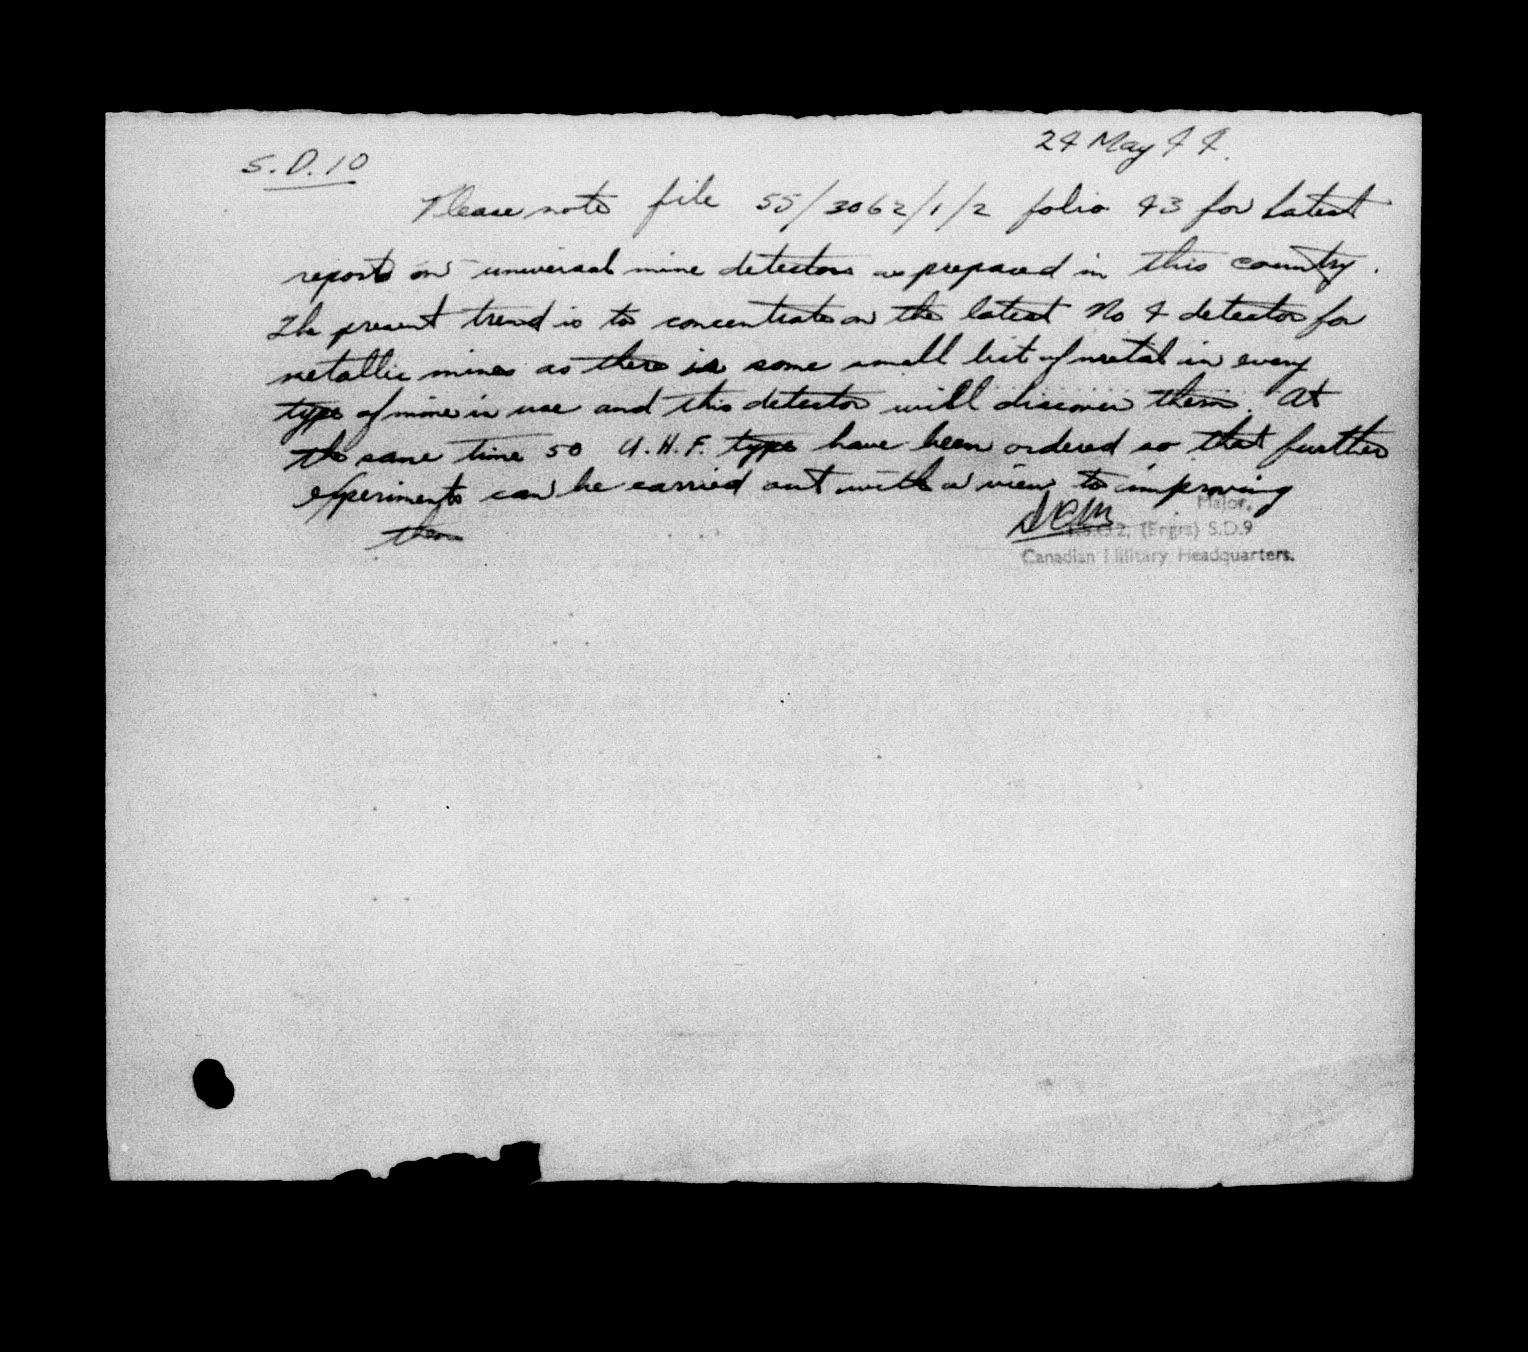 24 May 44.
S.D.10
Please note file 55/3062/1/2 folio 43 for latest
reports on universal mine detectors as prepared in this country.
The present trend is to concentrate on the latest No 4 detector for
metallic mines as there is some small bit of metal in every
type of mine in use and this detector will discover them. At
the same time 50 U.H.F. type have been ordered so that further
experiments can be carried out with a view to improving
them
Major,
(Engrs) S.D.9
Canadian Military Headquarters.